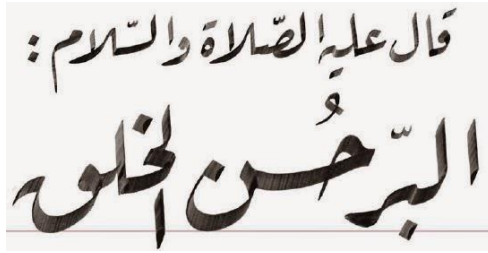 قال عليه الصّلاة والسّلام :
البرّ حُسن الخلق